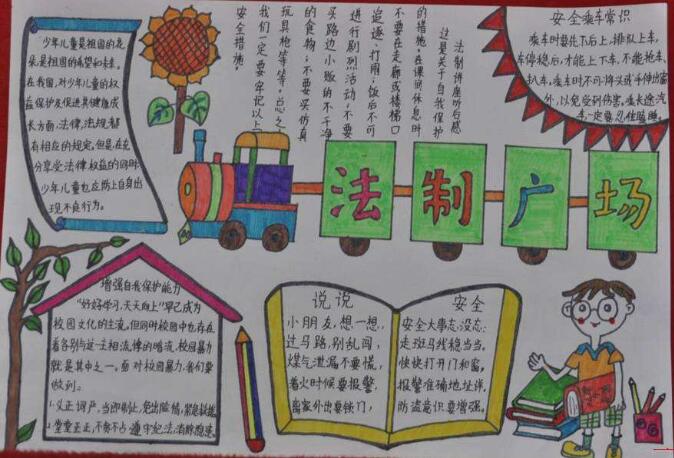 少年儿童是祖国的花
朵,是祖国的希望和未来。
在我国,对少年儿童的权
益保护及促进其健康成
长方面,法律,法规都
有相应的规定。但是在充
分享受法律权益的同时
少年儿童也应防止自身出
现不良行为。
法制讲座听后感
这是关于自我保护
的措施。在课间休息时
不要在走廊或楼梯口
追逐、打闹;饭后不可
进行剧烈活动;不要
买路边小贩的不干净
的食物;不要买仿真
玩具枪等等。总之
我们一定要牢记以上
安全措施。
安全乘车常识
乘车时要先下后上,排队上车,
车停稳后,才能上下车,不能抢车、
扒车,乘车时不可将头或手伸出窗
外,以免受到伤害,乘长途汽
车一定要忍住瞌睡。
法制广场
增强自我保护能力
“好好学习,天天向上”早已成为
校园文化的主流,但同时校园中也存在
着各别与这一主相流律的暗流,校园暴力
就是其中之一。面对校园暴力,我们要
做到:
1.义正词严,当即制止,
2.堂堂正正,不贪不占,遵守纪法,消除隐患
说说
小朋友,想一想,
过马路,别乱闯,
煤气泄漏不要慌,
着火时候要报警,
离家外出要锁门,
安全
安全大事忘没忘:
走斑马线稳当当。
快快打开门和窗。
报警准确地址详。
防盗意识要增强。